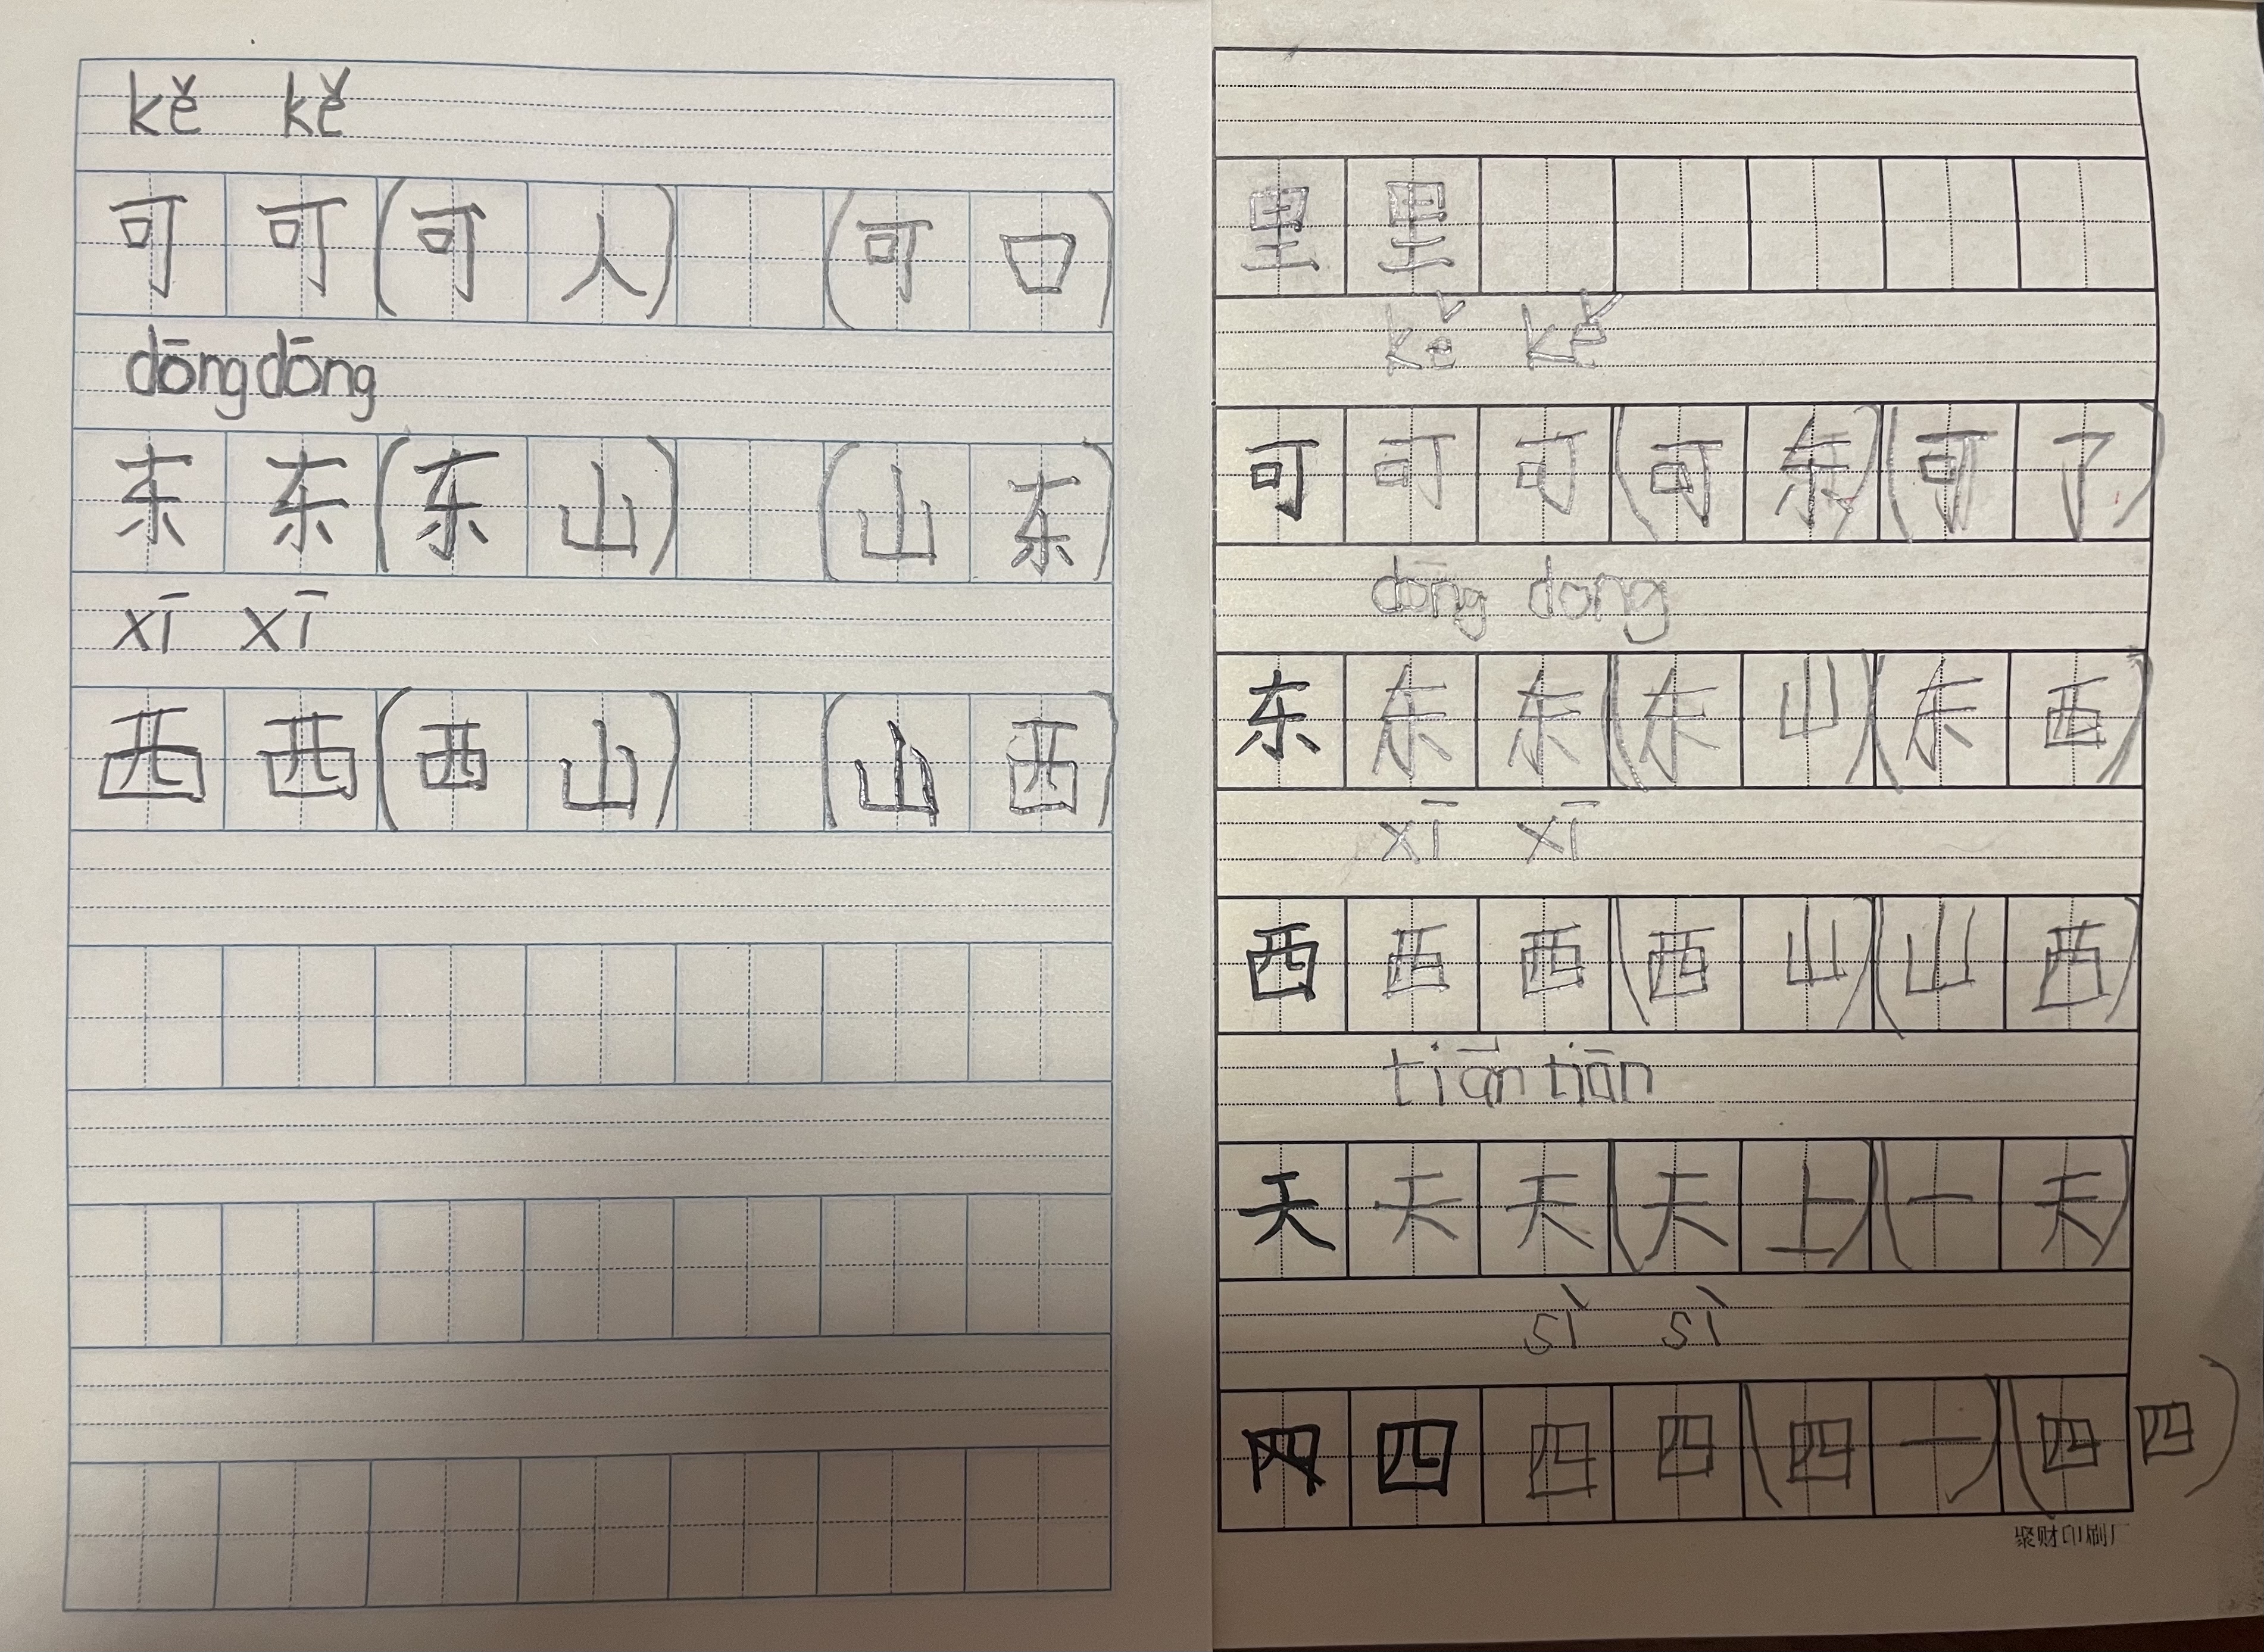 kě kě
可 可 (可 人) (可 口)
dōng dōng
东 东 (东 山) (山 东)
xī xī
西 西 (西 山) (山 西)
里 里
kě kě
可 可 可 (可 东) (可 了)
dōng dong
东 东 东 (东 山) (东 西)
xī xī
西 西 西 (西 山) (山 西)
tiān tiān
天 天 天 (天 上) (一 天)
sì sì
四 四 四 (四 一) (四 四)
聚财印刷厂